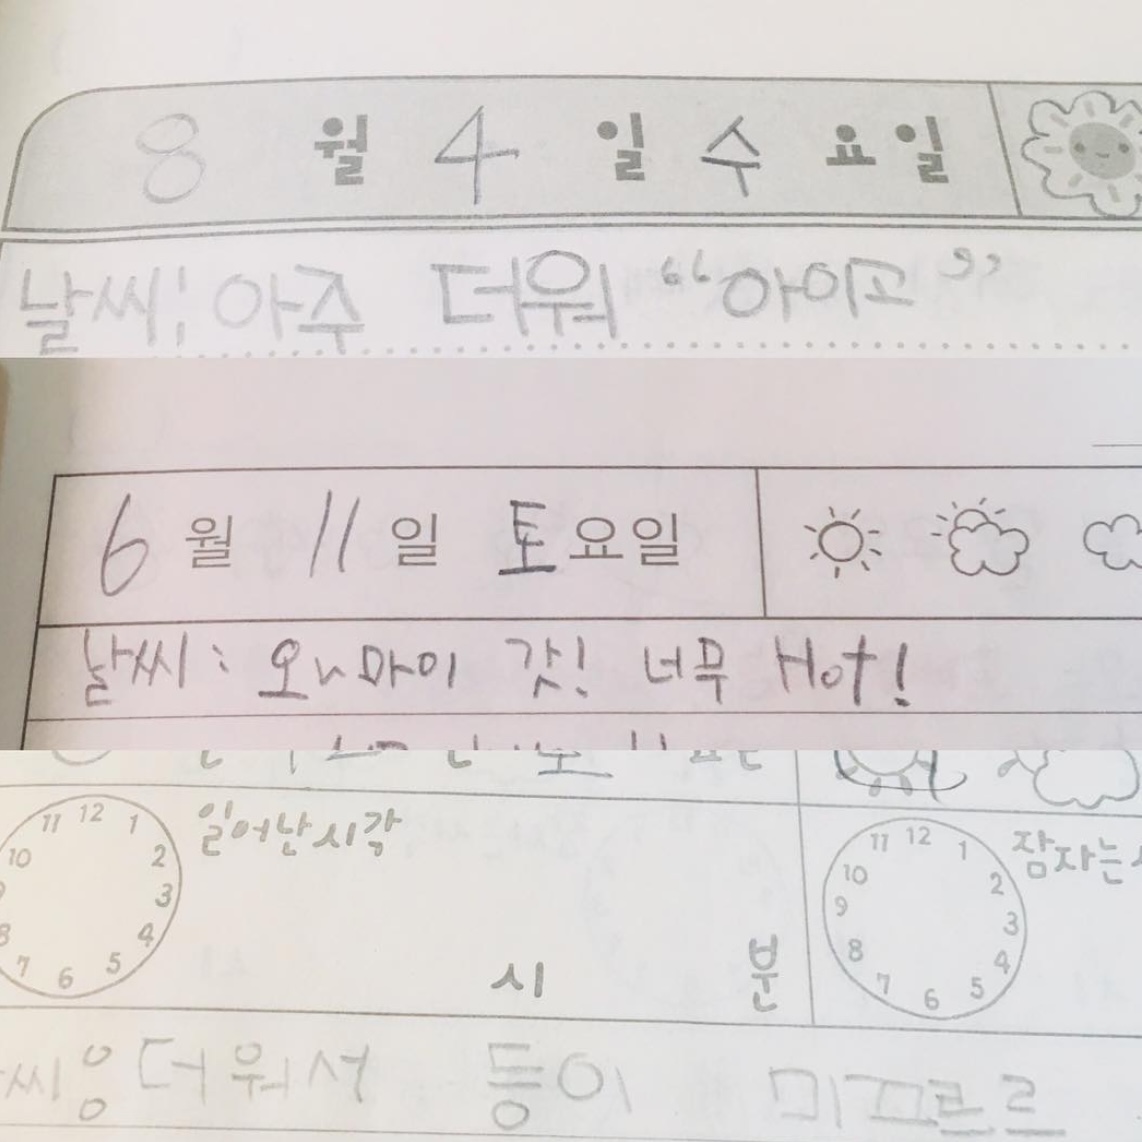 8 월 4 일 수 요일
날씨: 아주 더워 “아이고”
6 월 11 일 토요일
날씨: 오 마이 갓! 너무 Hot!
일어난시각
11 12 1
10 2
3
8 4
7 6 5
시 분
잠자는
11 12 1
10 2
9 3
8 4
7 6 5
씨: 더워서 등이 미끄르르